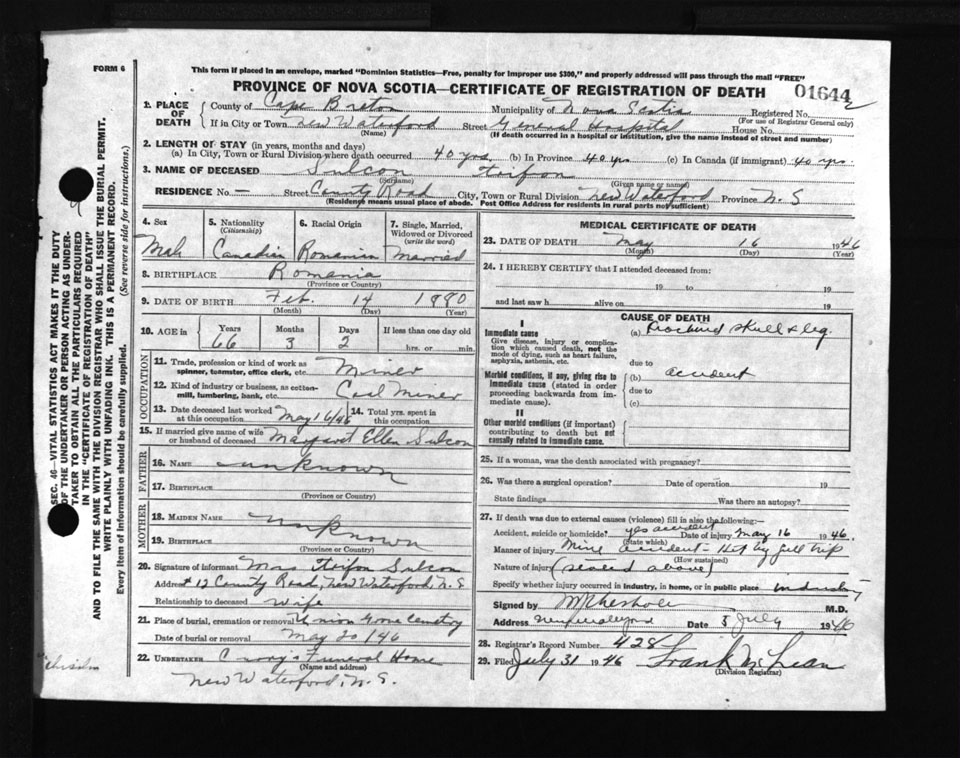 FORM 6
This form if placed in an envelope, marked "Dominion Statistics—Free, penalty for improper use $300," and properly addressed will pass through the mail "FREE"
PROVINCE OF NOVA SCOTIA—CERTIFICATE OF REGISTRATION OF DEATH
01644
1. PLACE OF DEATH
County of Cape Breton Municipality of Nova Scotia Registered No.
(For use of Registrar General only)
If in City or Town New Waterford Street General Hospital House No.
(Name) (If death occurred in a hospital or institution, give the name instead of street and number)
2. LENGTH OF STAY (in years, months and days)
(a) In City, Town or Rural Division where death occurred 40 yrs. (b) In Province 40 yrs (c) In Canada (if immigrant) 40 yrs.
3. NAME OF DECEASED Sulcon
(Surname) (Given name or names)
RESIDENCE No. — Street County Road City, Town or Rural Division New Waterford Province N. S
(Residence means usual place of abode. Post Office Address for residents in rural parts not sufficient)
4. Sex
Male
5. Nationality
(Citizenship)
Canadian
6. Racial Origin
Romanian
7. Single, Married, Widowed or Divorced
(write the word)
Married
8. BIRTHPLACE Romania
(Province or Country)
9. DATE OF BIRTH Feb. 14 1880
(Month) (Day) (Year)
10. AGE in
Years Months Days If less than one day old
66 3 2 hrs. or min.
OCCUPATION
11. Trade, profession or kind of work as spinner, teamster, office clerk, etc. Miner
12. Kind of industry or business, as cotton-mill, lumbering, bank, etc. Coal Miner
13. Date deceased last worked at this occupation May 16/46
14. Total yrs. spent in this occupation
15. If married give name of wife or husband of deceased Margaret Ellen Sulcon
FATHER
16. NAME unknown
17. BIRTHPLACE
(Province or Country)
MOTHER
18. MAIDEN NAME unknown
19. BIRTHPLACE
(Province or Country)
20. Signature of informant Mrs Sulcon
Address # 12 County Road, New Waterford, N. S
Relationship to deceased wife
21. Place of burial, cremation or removal Union Grove Cemetery
Date of burial or removal May 20/46
22. UNDERTAKER Funeral Home
(Name and address)
New Waterford, N. S.
MEDICAL CERTIFICATE OF DEATH
23. DATE OF DEATH May 16 1946
(Month) (Day) (Year)
24. I HEREBY CERTIFY that I attended deceased from:
19 to 19
and last saw h alive on 19
CAUSE OF DEATH
I
Immediate cause
Give disease, injury or complication which caused death, not the mode of dying, such as heart failure, asphyxia, asthenia, etc.
(a) Fractured skull & leg.
due to
Morbid conditions, if any, giving rise to immediate cause (stated in order proceeding backwards from immediate cause).
(b) accident
due to
(c)
II
Other morbid conditions (if important) contributing to death but not causally related to immediate cause.
25. If a woman, was the death associated with pregnancy?
26. Was there a surgical operation? Date of operation 19
State findings Was there an autopsy?
27. If death was due to external causes (violence) fill in also the following:—
Accident, suicide or homicide? yes accident Date of injury May 16 1946.
(State which)
Manner of injury Mine accident - Hit by full trip
(How sustained)
Nature of injury (stated above)
Specify whether injury occurred in industry, in home, or in public place industry
Signed by M.D.
Address New Waterford Date 5 July 1946
28. Registrar's Record Number 428
29. Filed July 31 1946 Frank McLean
(Division Registrar)
SEC. 46—VITAL STATISTICS ACT MAKES IT THE DUTY
OF THE UNDERTAKER OR PERSON ACTING AS UNDER-
TAKER TO OBTAIN ALL THE PARTICULARS REQUIRED
IN THE "CERTIFICATE OF REGISTRATION OF DEATH"
AND TO FILE THE SAME WITH THE DIVISION REGISTRAR WHO SHALL ISSUE THE BURIAL PERMIT.
WRITE PLAINLY WITH UNFADING INK. THIS IS A PERMANENT RECORD.
Every item of information should be carefully supplied. (See reverse side for instructions.)